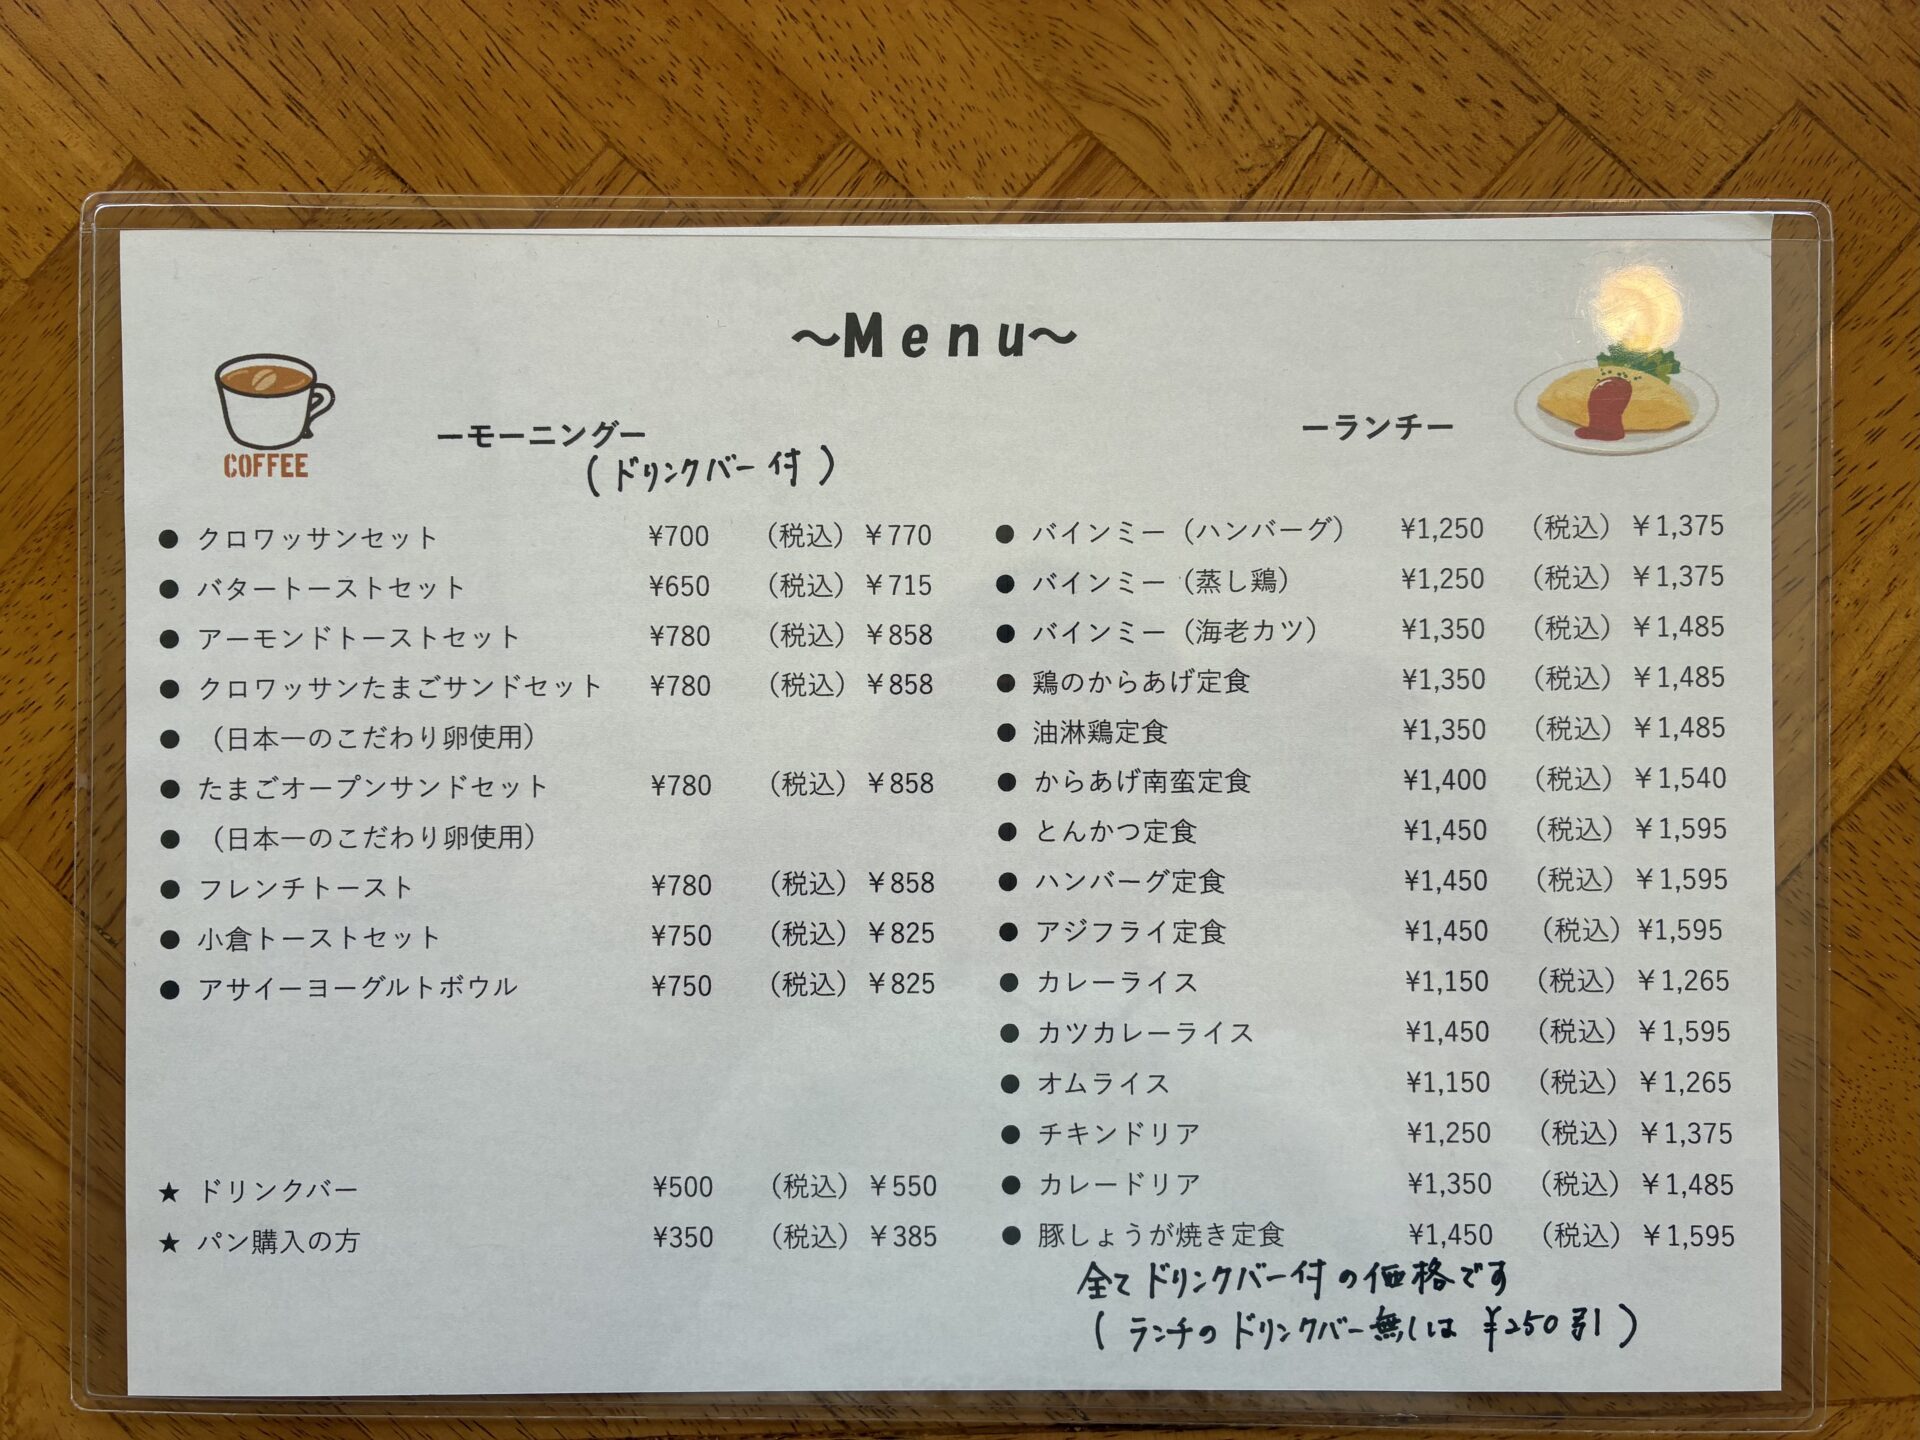 ～Menu～
COFFEE
ーモーニングー
（ドリンクバー付）
● クロワッサンセット ¥700 （税込）￥770
● バタートーストセット ¥650 （税込）￥715
● アーモンドトーストセット ¥780 （税込）￥858
● クロワッサンたまごサンドセット ¥780 （税込）￥858
● （日本一のこだわり卵使用）
● たまごオープンサンドセット ¥780 （税込）￥858
● （日本一のこだわり卵使用）
● フレンチトースト ¥780 （税込）￥858
● 小倉トーストセット ¥750 （税込）￥825
● アサイーヨーグルトボウル ¥750 （税込）￥825
★ ドリンクバー ¥500 （税込）￥550
★ パン購入の方 ¥350 （税込）￥385
ーランチー
● バインミー（ハンバーグ） ¥1,250 （税込）￥1,375
● バインミー（蒸し鶏） ¥1,250 （税込）￥1,375
● バインミー（海老カツ） ¥1,350 （税込）￥1,485
● 鶏のからあげ定食 ¥1,350 （税込）￥1,485
● 油淋鶏定食 ¥1,350 （税込）￥1,485
● からあげ南蛮定食 ¥1,400 （税込）￥1,540
● とんかつ定食 ¥1,450 （税込）￥1,595
● ハンバーグ定食 ¥1,450 （税込）￥1,595
● アジフライ定食 ¥1,450 （税込）¥1,595
● カレーライス ¥1,150 （税込）￥1,265
● カツカレーライス ¥1,450 （税込）￥1,595
● オムライス ¥1,150 （税込）￥1,265
● チキンドリア ¥1,250 （税込）￥1,375
● カレードリア ¥1,350 （税込）￥1,485
● 豚しょうが焼き定食 ¥1,450 （税込）￥1,595
全てドリンクバー付の価格です
（ランチのドリンクバー無しは ¥250引）